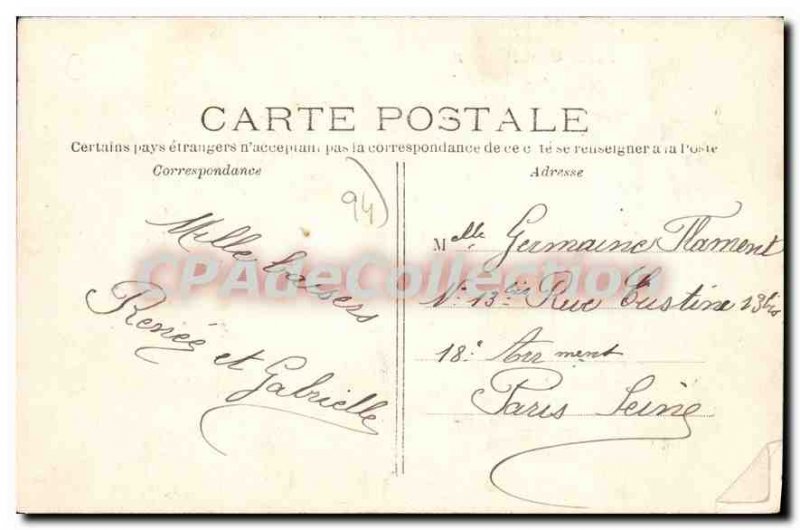 CARTE POSTALE
Certains pays étrangers n'acceptant pas la correspondance de ce côté se renseigner à la Poste
Correspondance
Adresse
94
Mille baisers
Renée et Gabrielle
Melle Germaine Flament
N° 13 bis Rue Custine 13 bis
18e Arrment
Paris Seine
CPAdeCollection